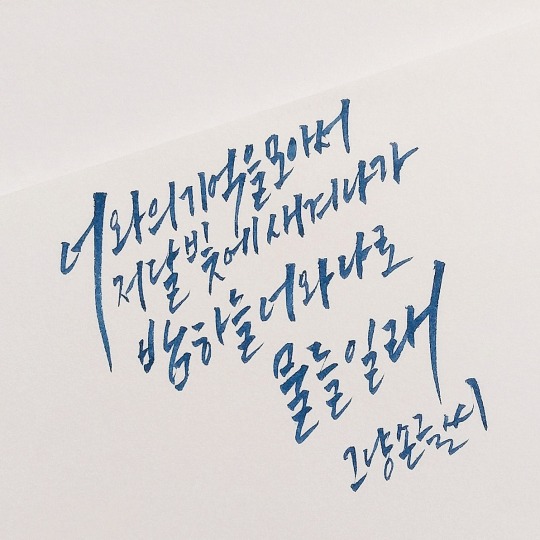 너와의 기억을 모아서
저 달빛에 새겨나가
밤하늘 너와 나로
물들일래
그냥손글씨